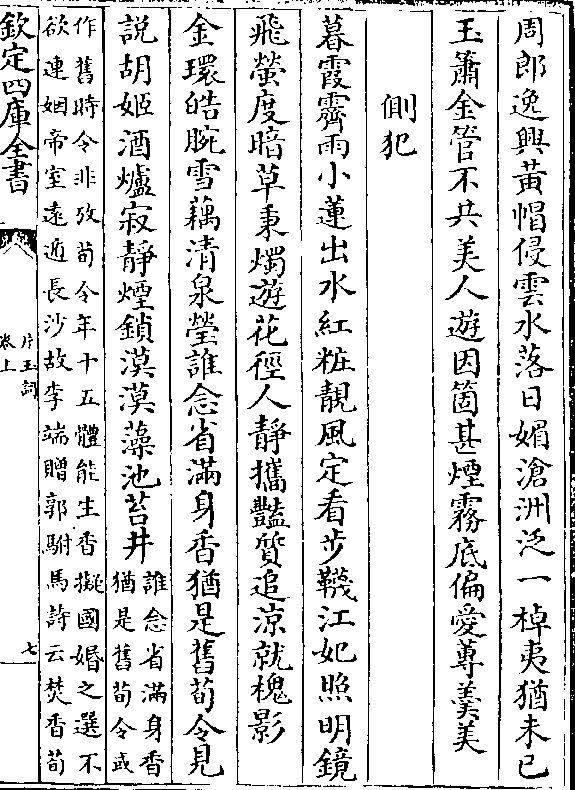 周郎逸興黃帽侵雲水落日媚滄洲泛一棹夷猶未已
玉簫金管不共美人遊因箇甚煙霧底偏愛蓴羮美
側犯
暮霞霽雨小蓮出水紅粧靚風定看步韈江妃照明鏡
飛螢度暗草秉燭遊花徑人靜攜豔質追涼就槐影
金環皓腕雪藕清泉瑩誰念省滿身香猶是舊荀令見
説胡姬酒壚寂靜煙鎖漠漠藻池苔井
誰念省滿身香
猶是舊荀令或
作舊時令非攷荀令年十五體能生香擬國婚之選不
欲連姻帝室遠適長沙故李端贈郭駙馬詩云焚香荀
欽定四庫全書
片玉詞
卷上
七